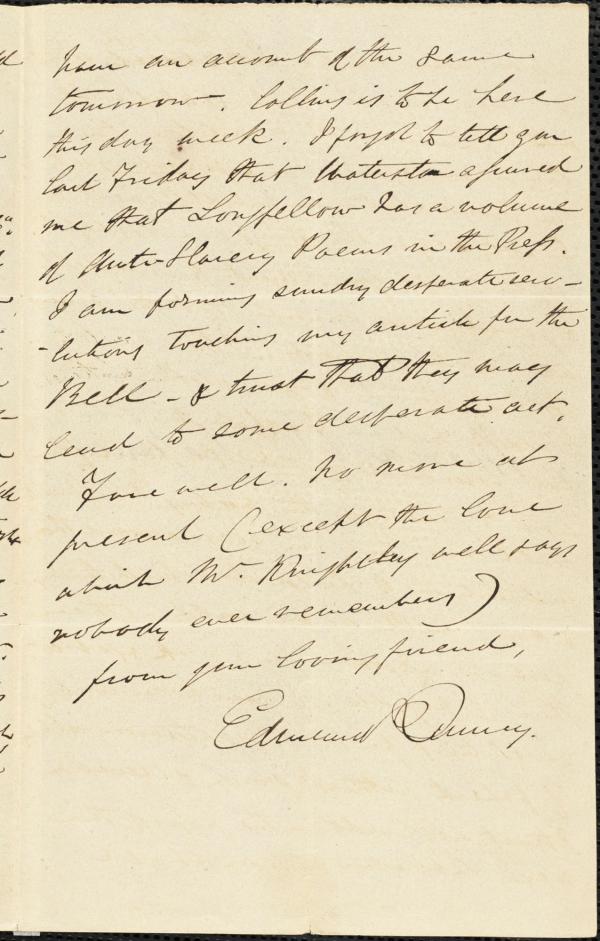 have an account of the same
tomorrow. Collins is to be here
this day week. I forgot to tell you
last Friday that Waterston assured
me that Longfellow has a volume
of Anti-Slavery Poems in the Press.
I am forming sundry desperate reso-
-lutions touching my article for the
Bell - & trust that they may
lead to some desperate act.
Farewell. No more at
present (except the love
which Mr. Knightley well says
nobody ever remembers)
from your loving friend,
Edmund Quincy.